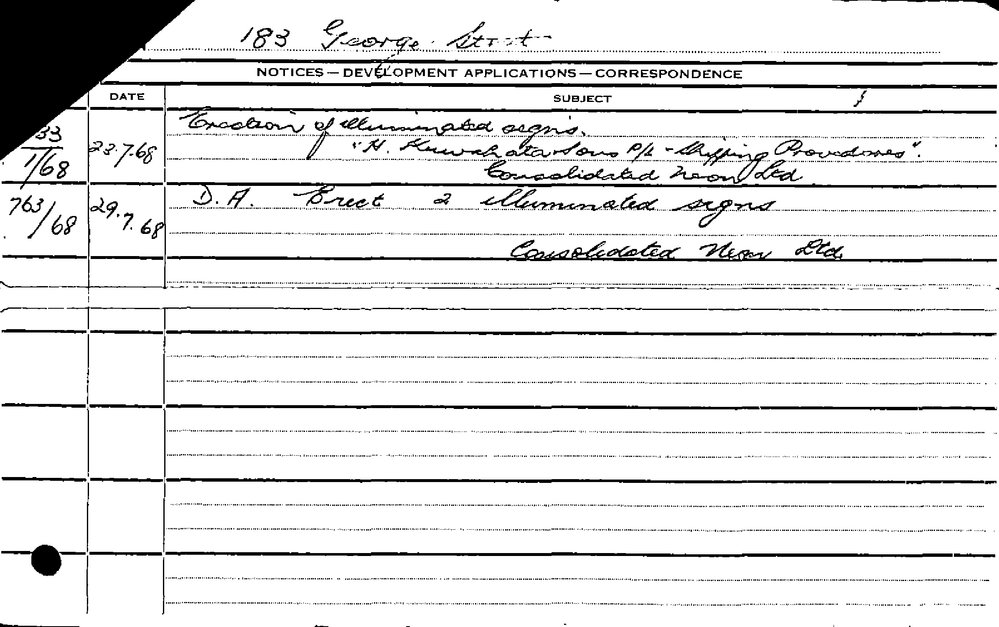 183 George Street
NOTICES—DEVELOPMENT APPLICATIONS—CORRESPONDENCE
DATE SUBJECT
33
1/68 23.7.68 Erection of illuminated signs.
"H. & Sons P/L - Shipping Provedores".
Consolidated Neon Ltd
763/68 29.7.68 D.A. Erect 2 illuminated signs
Consolidated Neon Ltd.